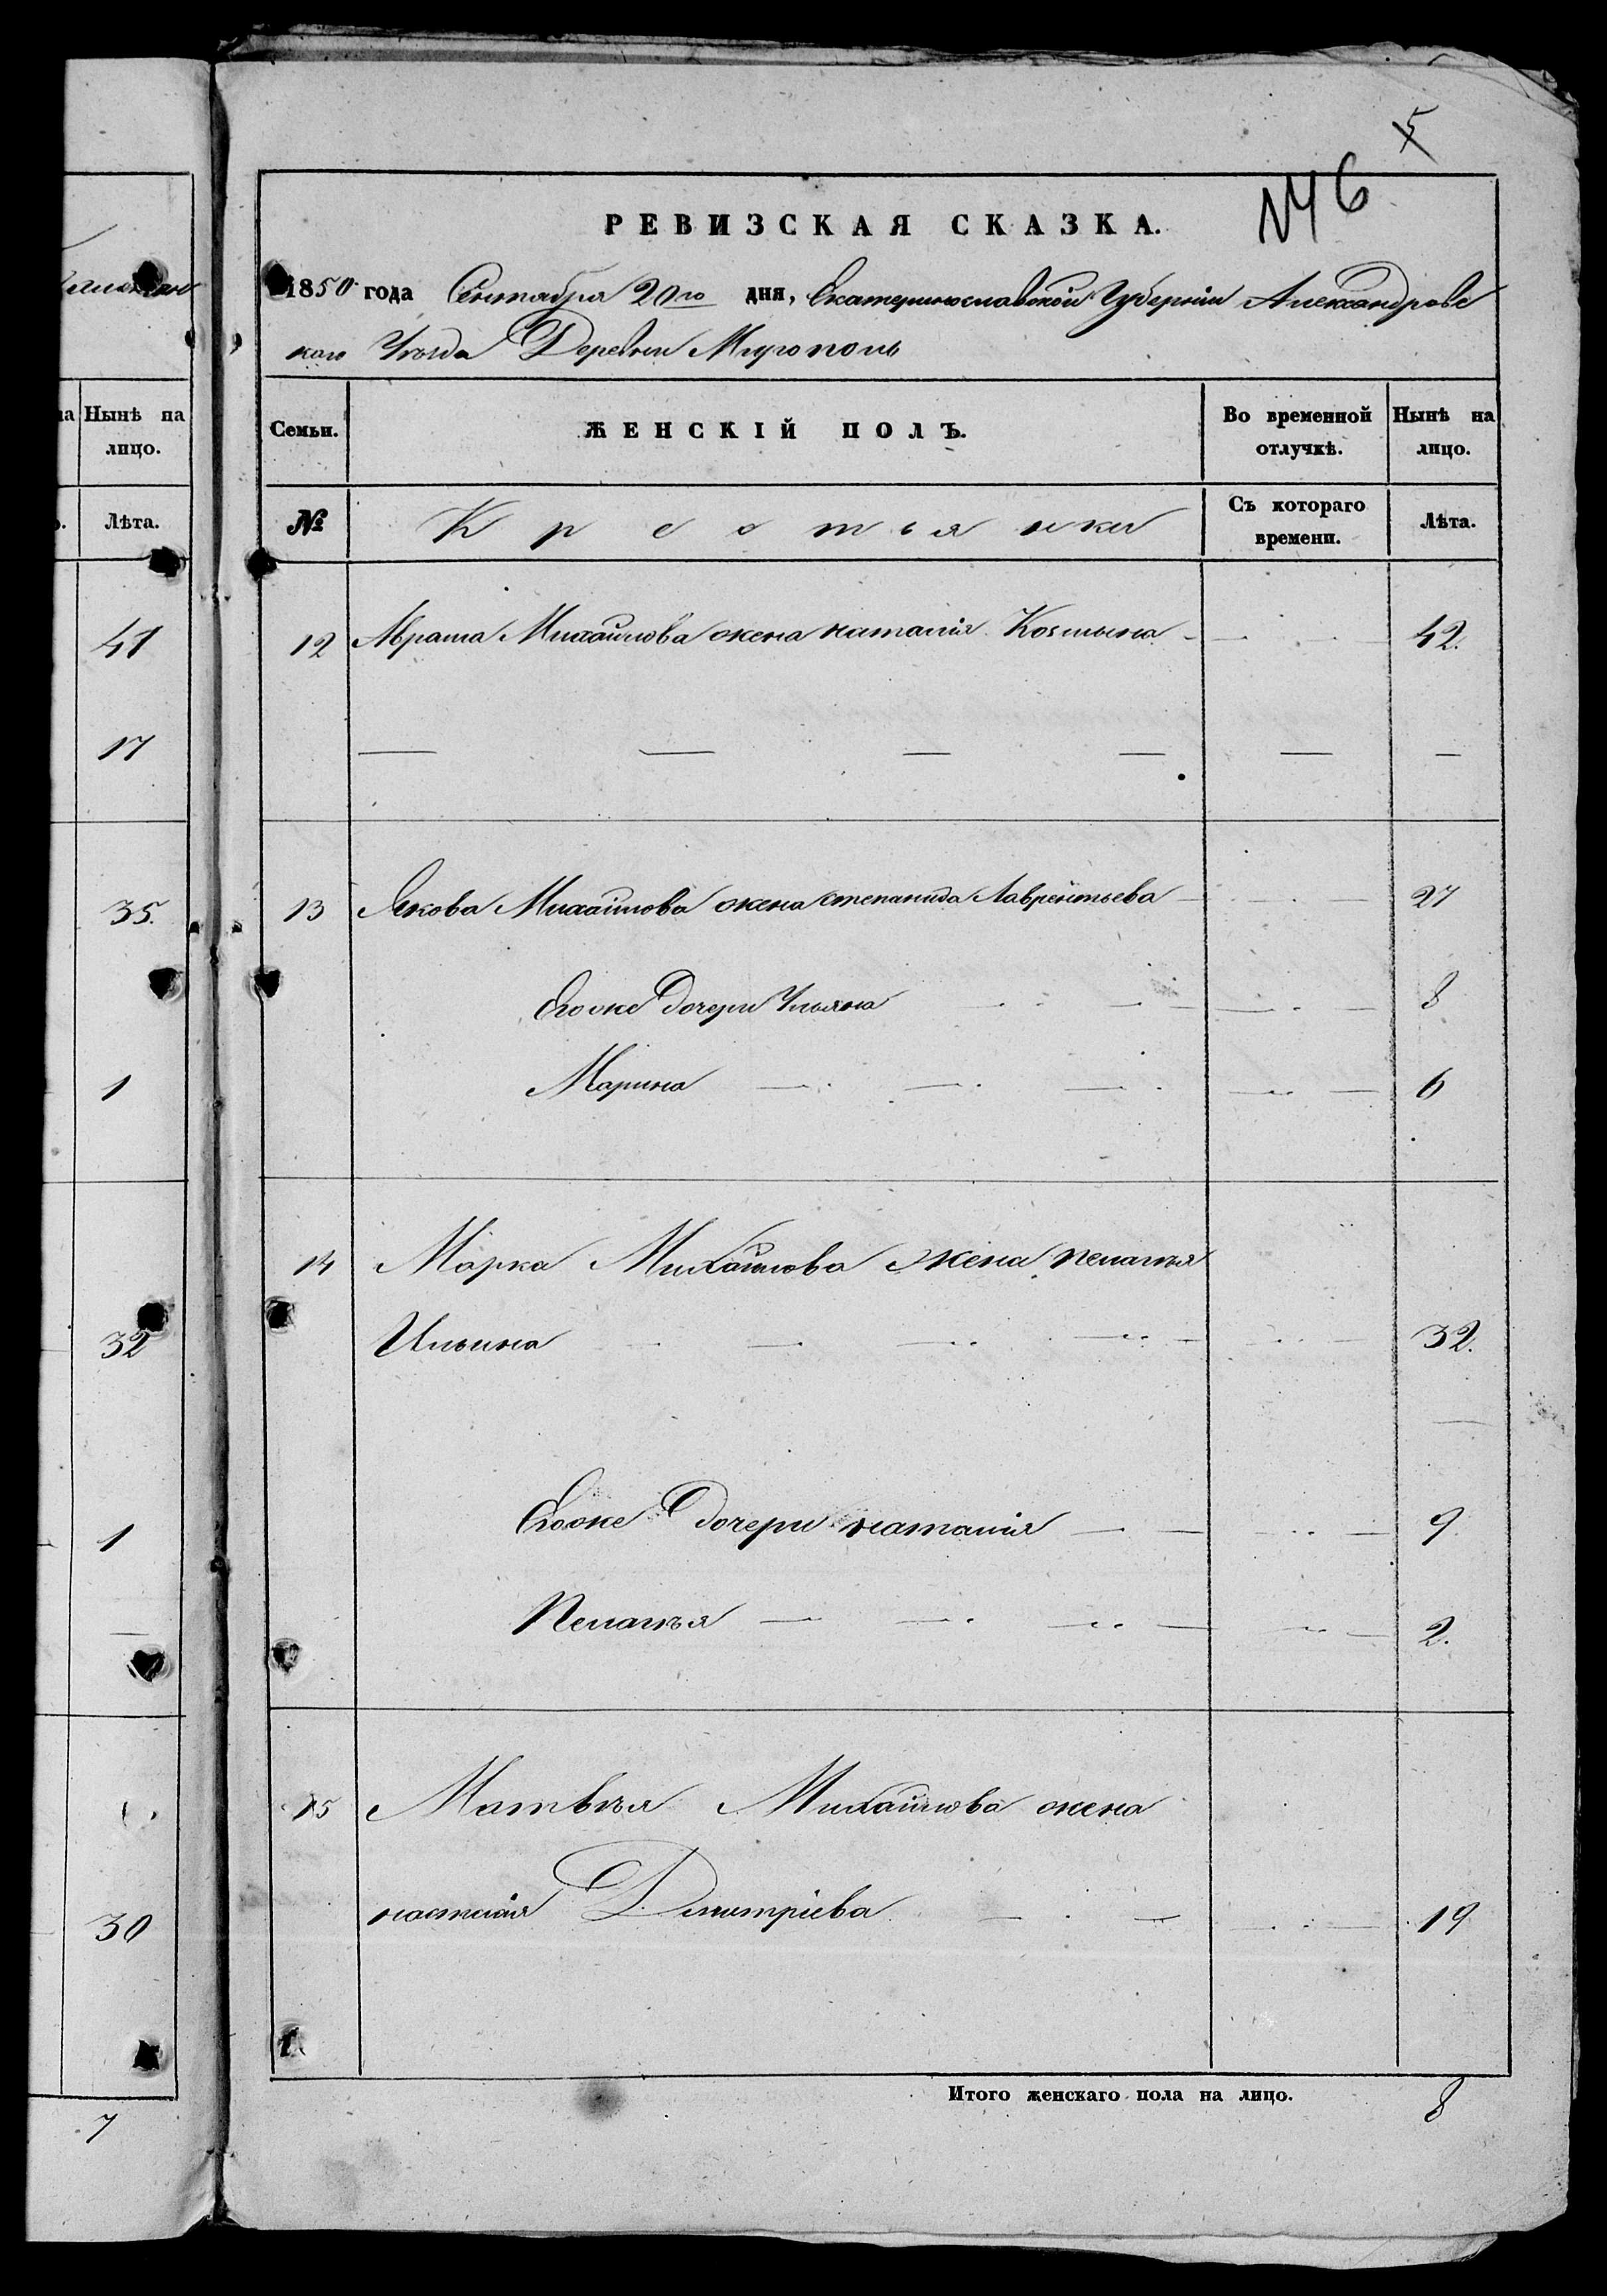 лицо.
Нынѣ на
лицо.
Лѣта.
41
17
35.
1
32
1
30
7
5
№ 6
РЕВИЗСКАЯ СКАЗКА.
1850 года Сентября 20го дня, Екатеринославской Губерніи Александровс
каго Уѣзда Деревни Мирополь
Семьи. ЖЕНСКІЙ ПОЛЪ. Во временной отлучкѣ. Нынѣ на лицо.
№ Крестьянки Съ котораго времени. Лѣта.
12 Михайлова жена наталія Козмина 42.
13 Якова Михайлова жена степанида Лаврентьева 27
Егоже Дочери Ульяна 8
Марина 6
14 Марка Михайлова жена пелагѣя
Ильина 32.
Егоже Дочери наталія 9
Пелагѣя 2.
15 Матвѣя Михайлова жена
настасія Дмитріева 19
Итого женскаго пола на лицо. 8